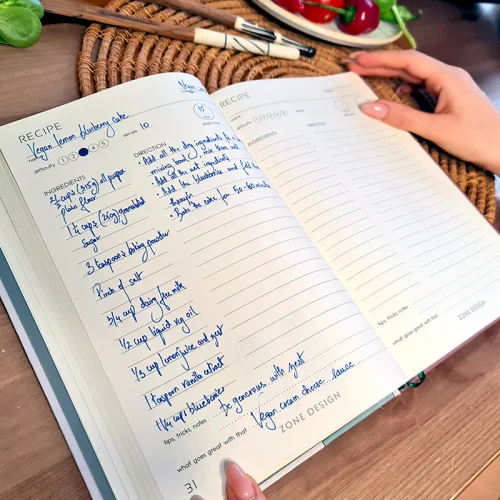 RECIPE
Vegan
name Vegan lemon blueberry cake
difficulty 1 2 4 5 serves 10
15
INGREDIENTS
2 1/2 cups (315g) all purpose
plain flour
1 1/4 cups (250g) granulated
sugar
3 teaspoons baking powder
Pinch of salt
3/4 cup dairy free milk
1/2 cup liquid veg oil
1/3 cup lemon juice and zest
1 teaspoon vanilla extract
1 1/4 cups blueberries
DIRECTION
• Add all the dry ingredients to a
mixing bowl, mix them well
• Add all the wet ingredients
• Add the blueberries and fold
through
• Bake the cake for 50-60 minutes
tips, tricks, notes Be generous with zest
what goes great with that Vegan cream cheese sauce
ZONE DESIGN
31
RECIPE
name
difficulty
INGREDIENTS
DIRECTION
tips, tricks, notes
what goes great with that
ZONE DESIGN